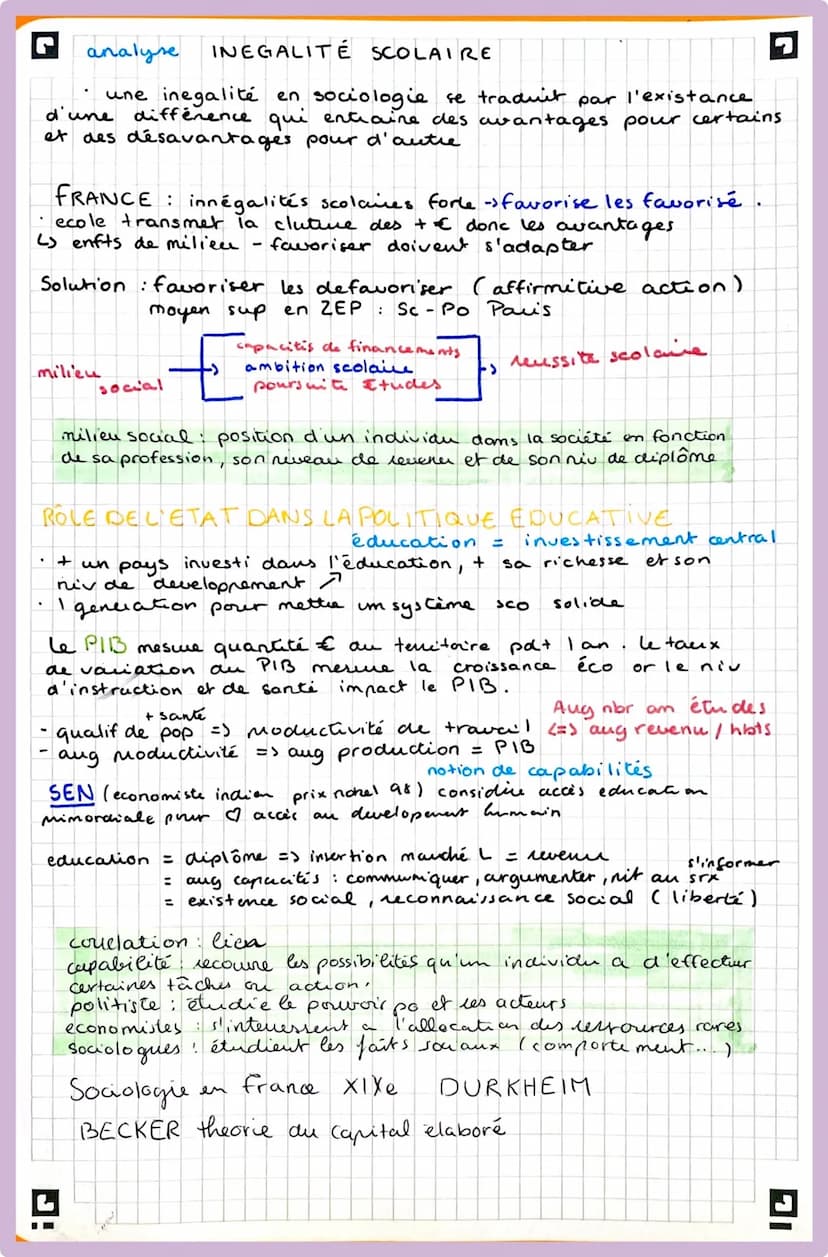 analyse INEGALITÉ SCOLAIRE
· une inegalité en sociologie se traduit par l'existance
d'une différence qui entraine des avantages pour certains
et des désavantages pour d'autre
FRANCE : innégalités scolaires forte -> favorise les favorisé .
· ecole transmet la clutue des + € donc les avantages
↳ enfts de milieu - favoriser doivent s'adapter
Solution : favoriser les defavoriser (affirmitive action)
moyen sup en ZEP : Sc-Po Paris
capacitis de financements
milieu social -> ambition scolaire -> reussite scolaire
poursuite Etudes
milieu social : position d'un individu dans la société en fonction
de sa profession, son niveau de revenu et de son niv de diplôme
RÔLE DE L'ETAT DANS LA POLITIQUE EDUCATIVE
éducation = investissement central
· + un pays investi dans l'éducation, + sa richesse et son
niv de developpement ↗
· 1 generation pour mettre un système sco solide
Le PIB mesure quantité € au territoire pdt 1 an . Le taux
de variation du PIB mesure la croissance éco or le niv
d'instruction et de santé impact le PIB.
Aug nbr an études
+ santé
- qualif de pop => productivité de travail <=> aug revenu / hbts
- aug productivité => aug production = PIB
notion de capabilités
SEN (economiste indien prix nobel 98) considère accès education
primordiale pour ♡ accès au developement humain
education = diplôme => insertion marché L = revenu
s'informer
= aug capacités : communiquer, argumenter, au srx
= existence social , reconnaissance social (liberté)
correlation : lien
capabilité : recouvre les possibilités qu'un individu a d'effectuer
certaines tâches ou action.
politiste : étudie le pouvoir po et ses acteurs
economistes : s'interressent a l'allocation des ressources rares
sociologues : étudient les faits sociaux (comportement...)
Sociologie en France XIXe DURKHEIM
BECKER theorie du capital elaboré